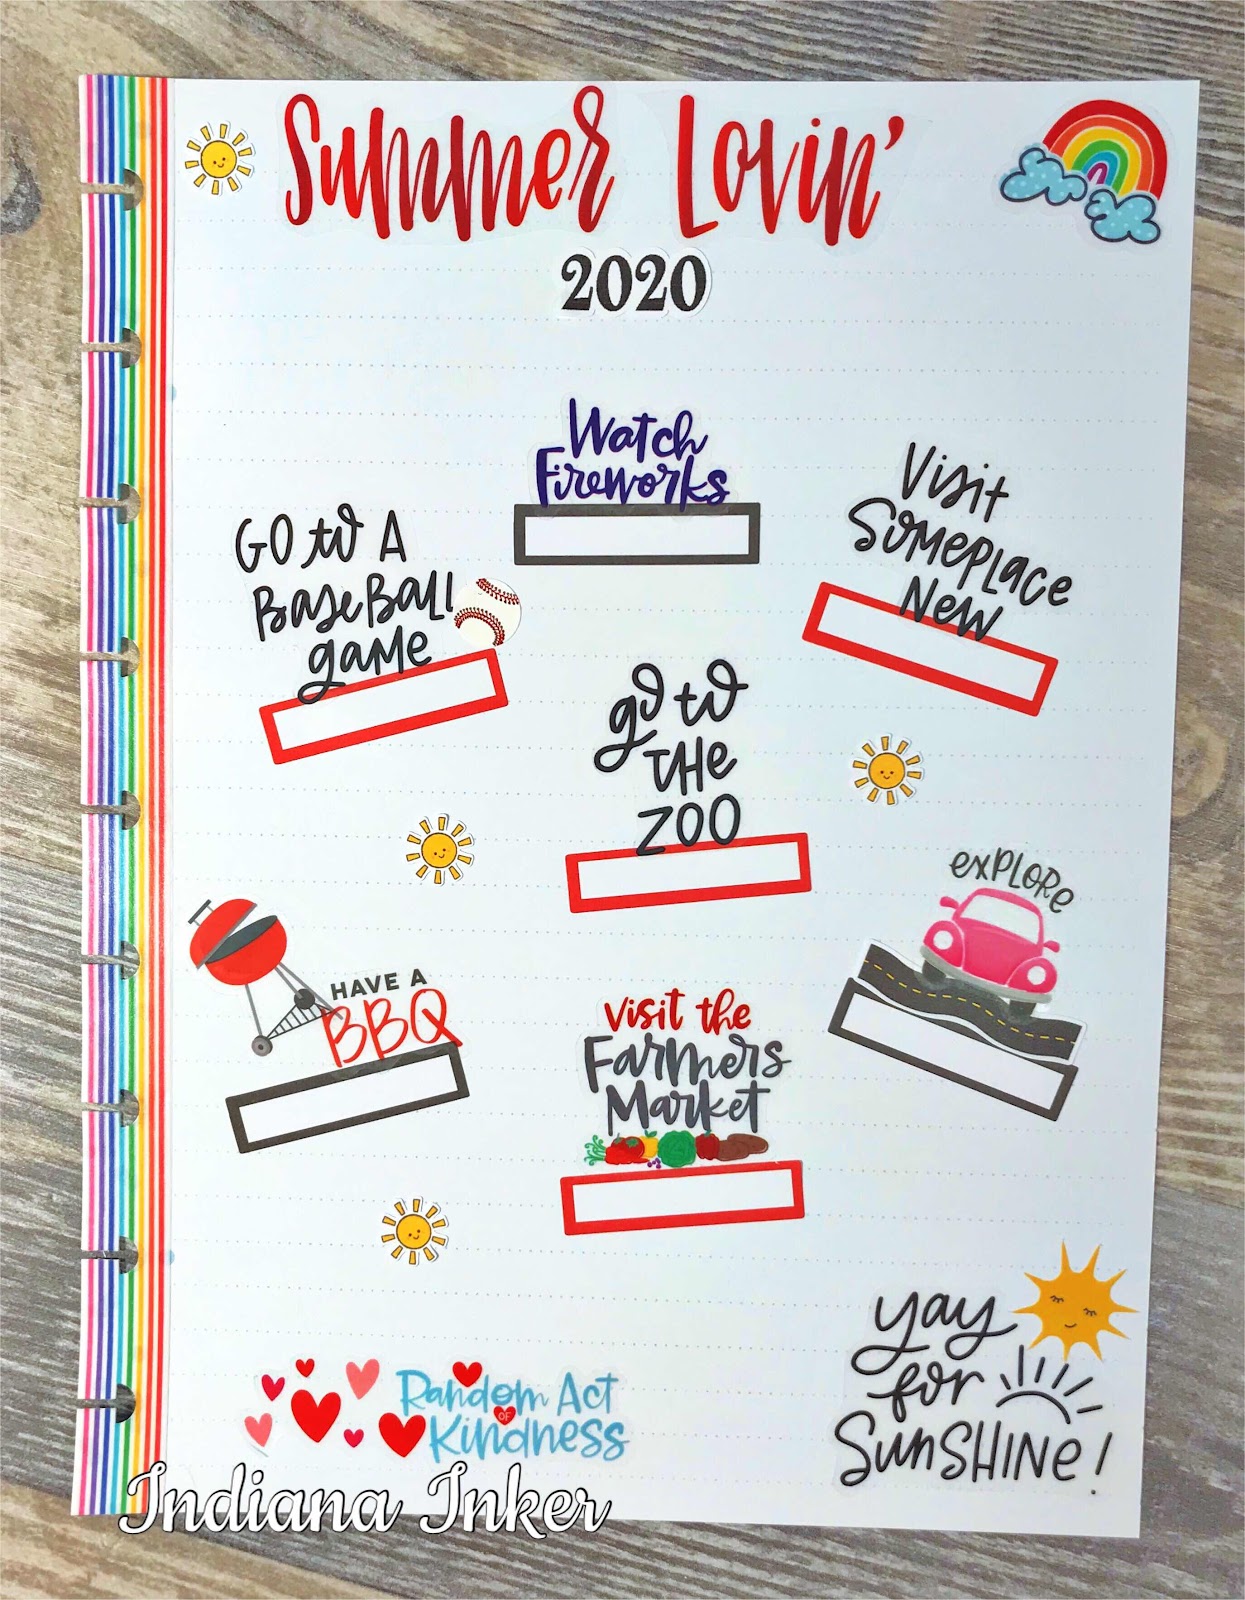 Summer Lovin'
2020
Watch
Fireworks
Go to A
BaseBall
game
Visit
Someplace
New
go to
the
zoo
explore
HAVE A
BBQ
visit the
Farmers
Market
yay
for
Sunshine!
Random Act
OF
Kindness
Indiana Inker